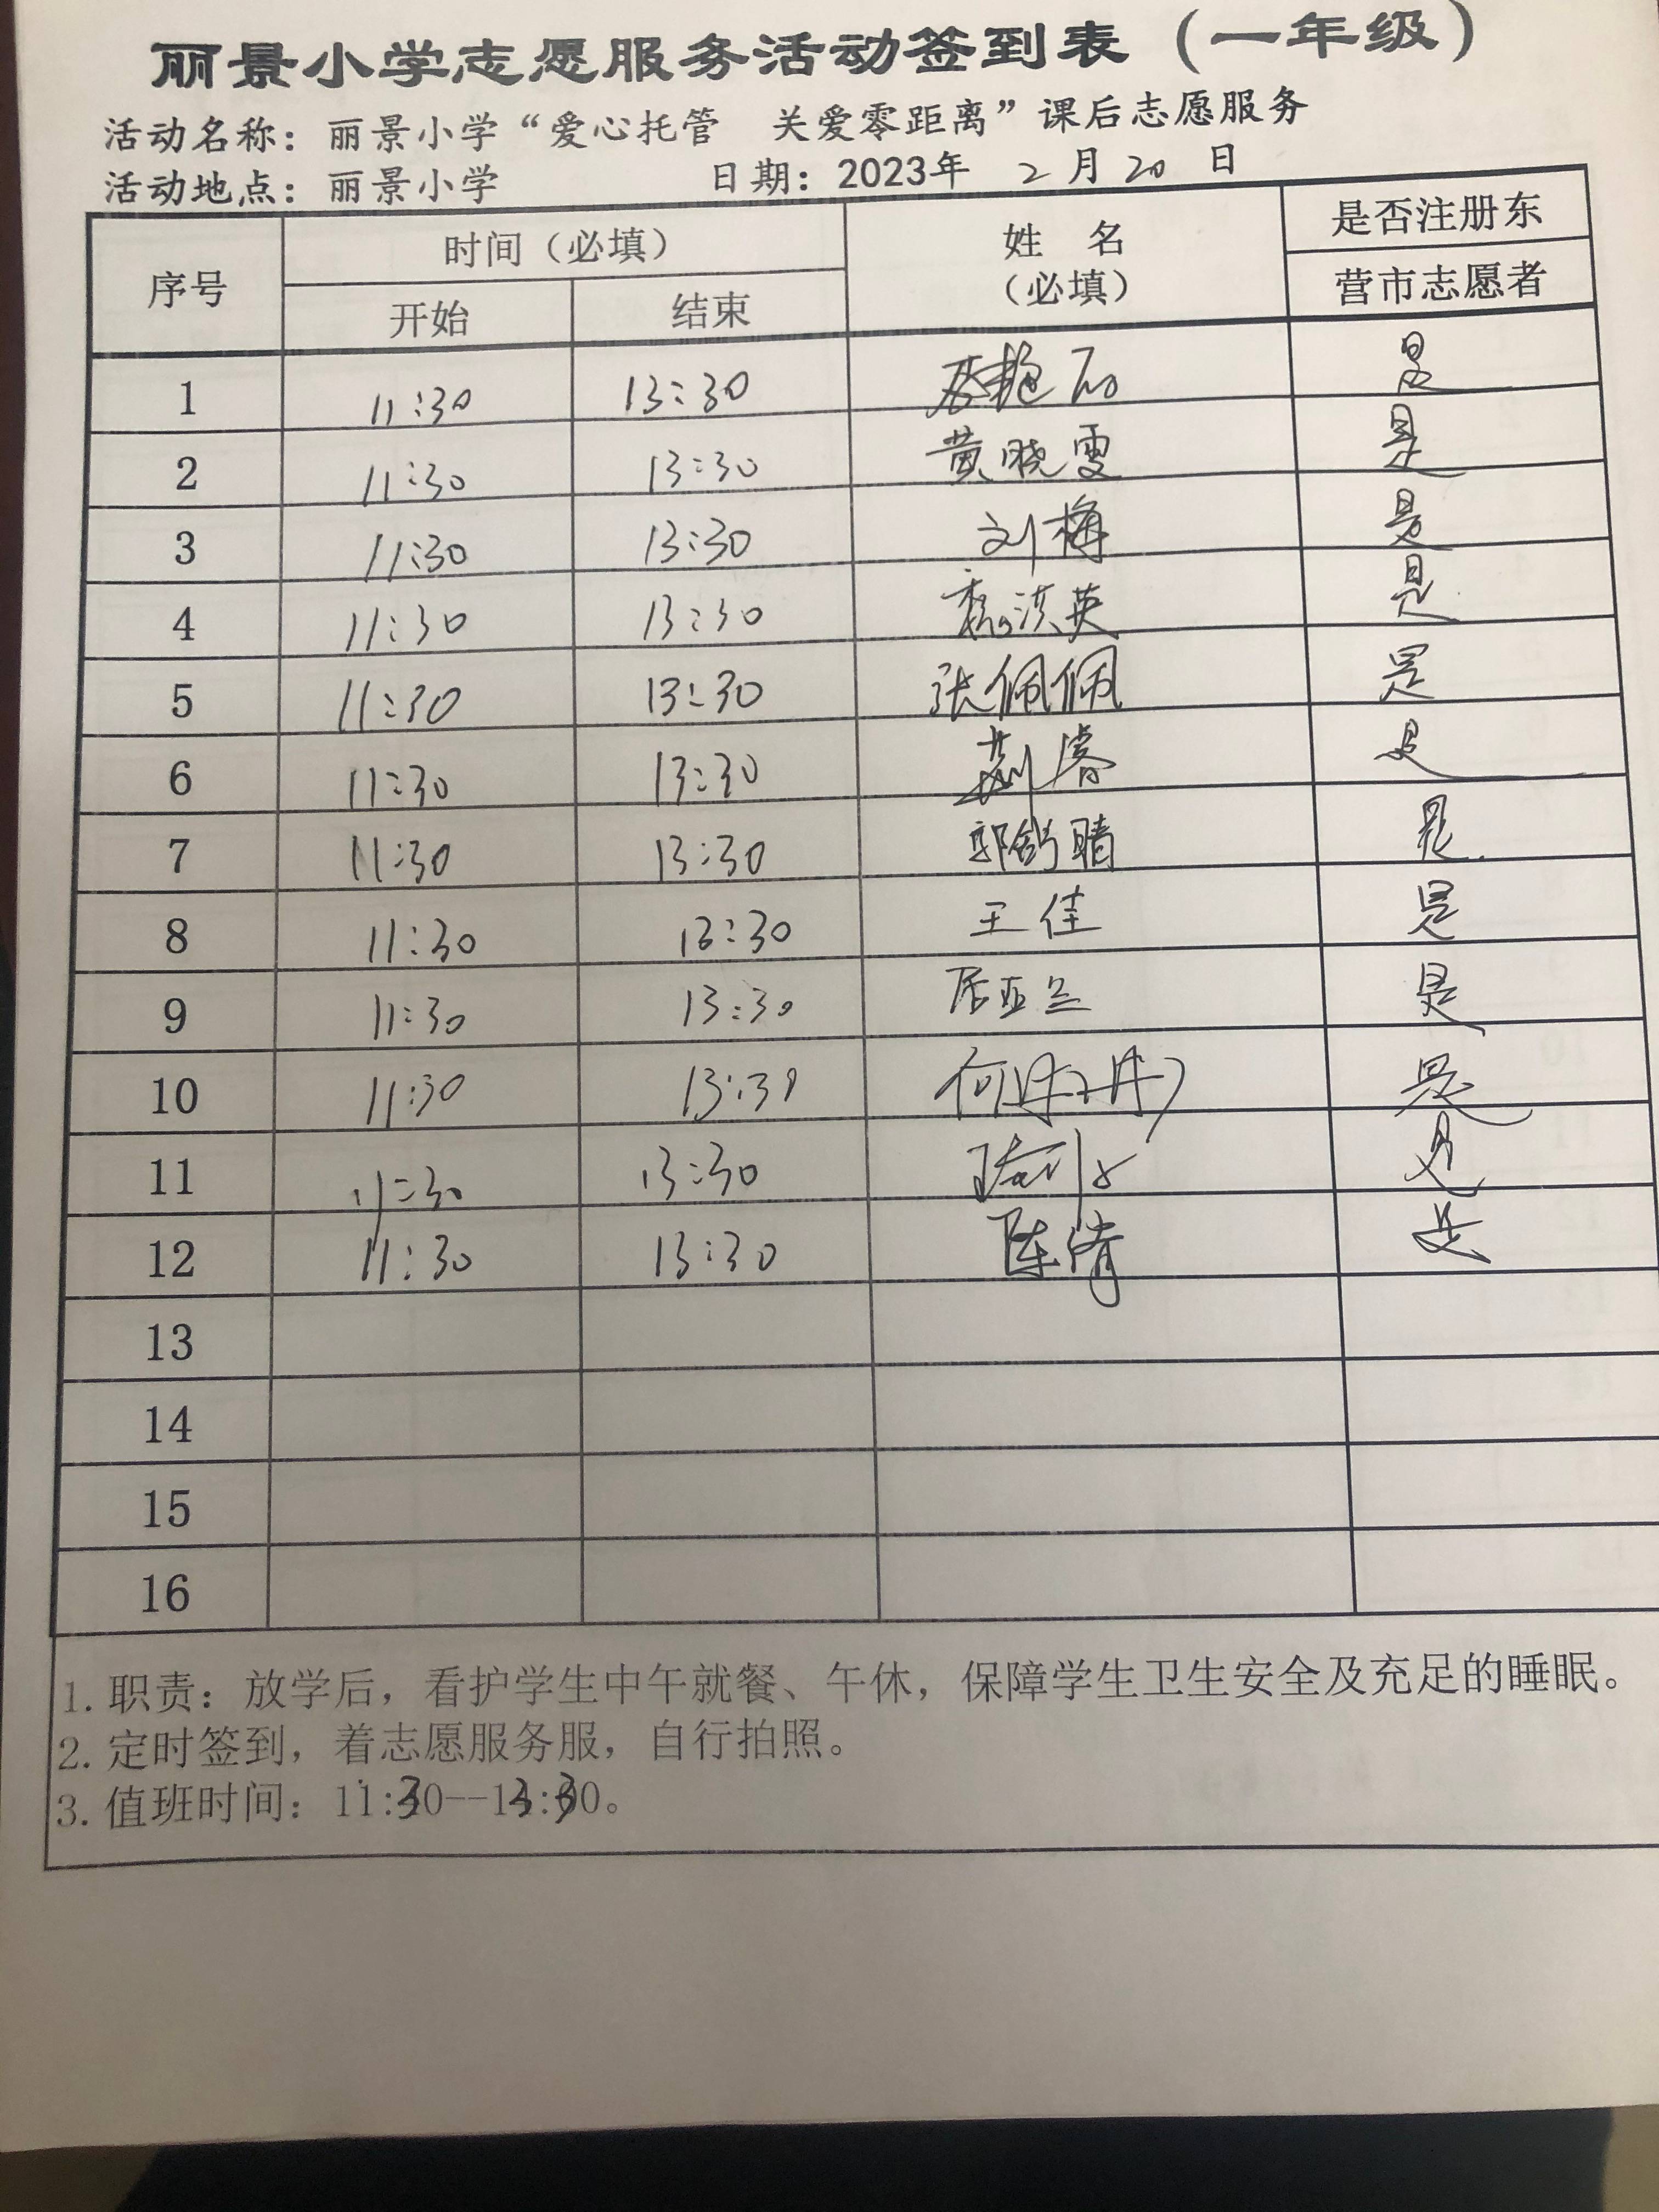 丽景小学志愿服务活动签到表（一年级）
活动名称：丽景小学“爱心托管 关爱零距离”课后志愿服务
活动地点：丽景小学 日期：2023年 2 月 20 日
序号 时间（必填） 姓 名 是否注册东
开始 结束 （必填） 营市志愿者
1 11:30 13:30 是
2 11:30 13:30 黄晓雯 是
3 11:30 13:30 刘梅 是
4 11:30 13:30 洪英 是
5 11:30 13:30 张佩佩 是
6 11:30 13:30 是
7 11:30 13:30 郭舒晴 是
8 11:30 13:30 王佳 是
9 11:30 13:30 亚兰 是
10 11:30 13:30 何丹丹 是
11 11:30 13:30 是
12 11:30 13:30 陈倩 是
13
14
15
16
1. 职责：放学后，看护学生中午就餐、午休，保障学生卫生安全及充足的睡眠。
2. 定时签到，着志愿服务服，自行拍照。
3. 值班时间：11:30--13:30。